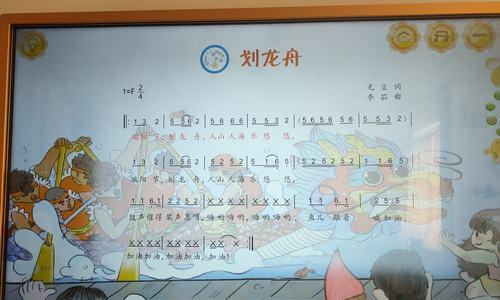 划龙舟
1=F 2/4
无尘 词
李茹 曲
‖: 1 3 2 | 5 5 6 2 | 5 6 6 6 | 5 5 3 2 | (5 6 5 6 5 6 | 5 5 3 2) |
端阳 节, 划龙 舟, 人山人海 乐 悠 悠。
1 3 2 | 5 5 6 2 | 5 2 5 2 | 5 1 6 5 | (5 2 5 2 5 2 | 1 1 6 5)
端阳 节, 划龙 舟, 人山人海 乐 悠 悠。
1 1 6 1 | 2 2 5 2 | X X X X | X X X X | 1 1 6 1 | 2 5 5 |
鼓声催得桨声急哨, 嗨哟嗨哟, 嗨哟嗨哟, 鱼儿 跟着 喊加油,
X X X X | X X X X | X X X :‖
加油加油, 加油加油, 加油!